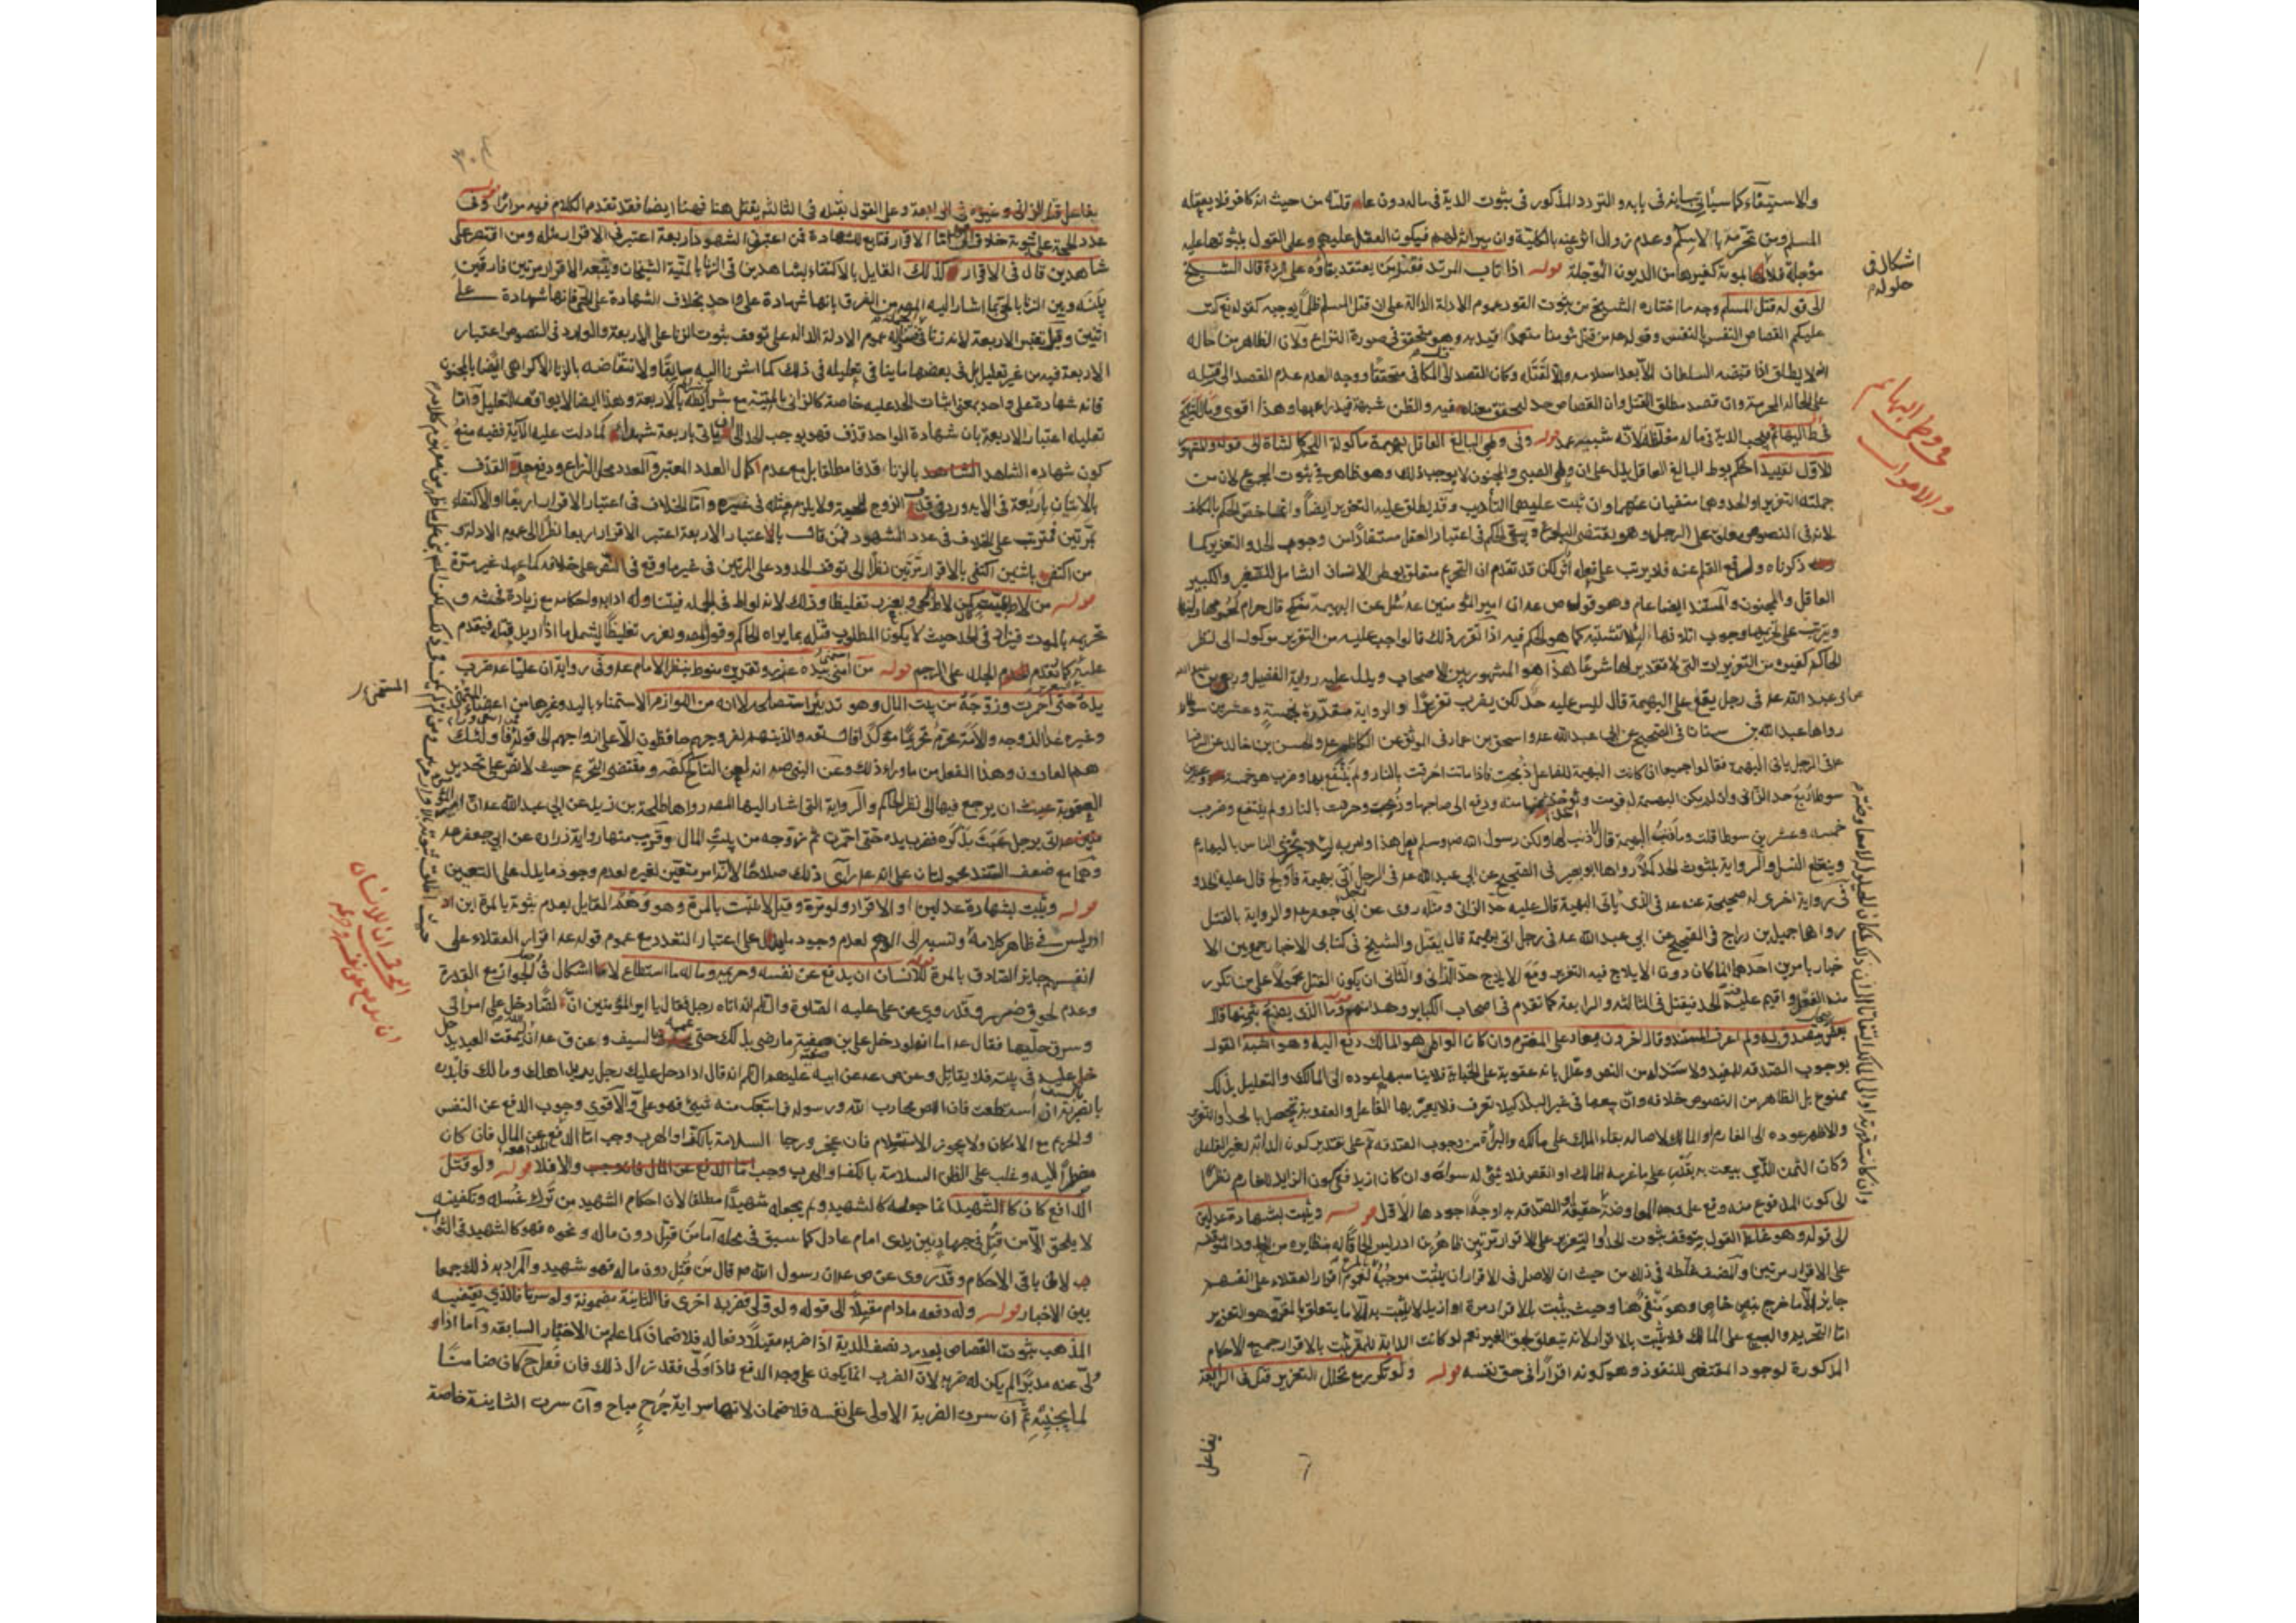 والاستيفاء كما سيأتي بيانه في بابه والتردد المذكور في ثبوت الدية في ماله دون عاقلته من حيث انه كافر فلا يعقله
المسلم ومن تحرمه بالاسلام وعدم زوال اثره عنه بالكلية وان ميراثه لهم فيكون العقل عليهم وعلى القول بثبوتها عليه
مؤجلة كغيرها من الديون المؤجلة قوله اذا تاب المرتد فقتله من يعتقد بقاؤه على الردة قال الشيخ
الى قوله قتل المسلم وجه ما اختاره الشيخ من ثبوت القود عموم الادلة الدالة على ان قتل المسلم ظلما يوجبه كقوله تع كتب
عليكم القصاص النفس بالنفس وقوله من قتل مؤمنا متعمدا اقيد به وهو متحقق في صورة النزاع ولان الظاهر من حاله
انه لا يطلق اذا قبضه السلطان الا بعد اسلامه والا لقتله وكان القصد الى المكافى متحققا ووجه العدم عدم القصد الى قتله
على الحالة المحرمة وان قصد مطلق القتل وان القصاص حد فيه والظن شبهة فيدرأ بها وهذا اقوى
فتجب الدية في ماله مغلظة لانه شبيه عمد قوله وفي وطي البالغ العاقل بهيمة مأكولة اللحم كالشاة الى قوله وللشهو
الاول تقييد الحكم بوطي البالغ العاقل يدل على ان وطي الصبي والمجنون لا يوجب ذلك وهو ظاهر في ثبوت المجموع لان من
جملته التعزير او الحد وهما منفيان عنهما وان ثبت عليهما التأديب وقد يطلق عليه التعزير ايضا وانما خص الحكم بالمكلف
لانه في النصوص معلق على الرجل وهو يقتضي البلوغ ويبقى الحكم في اعتبار العقل مستفادا من وجوب الحد والتعزير كما
ذكرناه ولرفع القلم عنه فلا يترتب على فعله اثر لكن قد تقدم ان التحريم متعلق بوطي الانسان الشامل للصغير والكبير
العاقل والمجنون والمستند ايضا عام وهو قوله ص عه ان امير المؤمنين عه سئل عن البهيمة تنكح قال حرام لحمها ولبنها
ويترتب على تحريمها وجوب اتلافها لئلا تشتبه كما هو الحكم فيه اذا تقرر ذلك فالواجب عليه من التعزير موكول الى نظر
الحاكم كغيره من التعزيرات التي لا تقدير لها شرعا هذا هو المشهور بين الاصحاب ويدل عليه رواية الفضيل وربعي بن عبد الله
عن ابي عبد الله عه في رجل يقع على البهيمة قال ليس عليه حد لكن يضرب تعزيرا والرواية مقدرة بخمسة وعشرين سوطا
رواها عبد الله بن سنان في الصحيح عن ابي عبد الله عه واسحق بن عمار في الموثق عن الكاظم عه والحسن بن خالد عن الرضا
عه في الرجل يأتي البهيمة فقالوا جميعا ان كانت البهيمة للفاعل ذبحت فاذا ماتت احرقت بالنار ولم ينتفع بها وضرب هو خمسة وعشرين
سوطا ربع حد الزاني وان لم تكن البهيمة له قومت واخذ ثمنها منه ودفع الى صاحبها وذبحت واحرقت بالنار ولم ينتفع وضرب
خمسة وعشرين سوطا قلت وما ذنب البهيمة قال لا ذنب لها ولكن رسول الله ص وسلم فعل هذا وامر به لئلا يجتزي الناس بالبهايم
وينقطع النسل والرواية بثبوت الحد كملا رواها ابو بصير في الصحيح عن ابي عبد الله عه في الرجل اتى بهيمة فاولج قال عليه الحد و
في رواية اخرى له صحيحة عنه عه في الذي يأتي البهيمة قال عليه حد الزاني ومثله روى عن ابي جعفر عه والرواية بالقتل
رواها جميل بن دراج في الصحيح عن ابي عبد الله عه في رجل اتى بهيمة قال يقتل والشيخ في كتابي الاخبار جمع بين الا
خبار بامرين احدهما انما كان دون الايلاج فيه التعزير ومع الايلاج حد الزاني والثاني ان يكون القتل محمولا على من تكرر
منه الفعل واقيم عليه الحد فيقتل في الثالثة والرابعة كما تقدم في اصحاب الكباير وحد اسمهم
ولم اعرف المستند وقال اخرون يعاد على المغترم وان كان الواطي هو المالك دفع اليه وهو اشبه القول
بوجوب الصدقة للمفيد ولا سند له من النص وعلل بانه عقوبة على الجناية فلا يناسبها عوده الى المالك والتعليل بذلك
ممنوع بل الظاهر من النصوص خلافه وان بيعها في غير البلد كيلا تعرف فلا يعير بها الفاعل والعقوبة تحصل بالحد او التعزير
والاظهر عوده الى الغارم او المالك لاصالة بقاء الملك على مالكه والبراءة من وجوب الصدقة ثم على تقدير كون الدابة لغير الفاعل
وكان الثمن الذي بيعت به بقدر ما غرمه للمالك او انقص فلا شيء له سواه وان كان ازيد ففي كون الزايد للغارم نظرا
الى كون المدفوع منه وقع على وجه المعاوضة حقيقة او الصدقة به اوجه اجودها الاول قوله ويثبت بشهادة عدلين
الى قوله وهو غلط القول بتوقف ثبوت الحد او التعزير على الاقرار مرتين ظاهر ابن ادريس الحاقا له بنظايره من الحدود الموقفة
على الاقرار مرتين والمصنف غلطه في ذلك من حيث ان الاصل في الاقرار ان يثبت موجبه لعموم اقرار العقلاء على انفسهم
جايز الا ما خرج بنص خاص وهو منفي هنا وحيث يثبت بالاقرار مرة او ازيد لا يثبت به الا ما يتعلق بالمقر وهو التعزير
اما التحريم والبيع على المالك فلا يثبت بالاقرار لانه يتعلق بحق الغير نعم لو كانت الدابة للمقر ثبت بالاقرار جميع الاحكام
المذكورة لوجود المقتضي للنفوذ وهو كونه اقرارا في حق نفسه قوله ولو تكرر مع تخلل التعزير قتل في الرابعة
يفاعل
اشكال في
حلوله
في وطي البهايم
والاموات
عدد الحجة على ثبوته خلاف اما الاقرار فتابع للشهادة فمن اعتبر في الشهود اربعة اعتبر في الاقرار مثله ومن اقتصر على
شاهدين قال في الاقرار كذلك القايل بالاكتفاء بشاهدين في الزنا بالميتة الشيخان وتبعه الاقرار مرتين فارقين
بينه وبين الزنا بالحي بما اشار اليه المص من الفرق بانها شهادة على واحد بخلاف الشهادة على الحي فانها شهادة على
اثنين وقيل يعتبر الاربعة لانه زنا عموم الادلة الدالة على توقف ثبوت الزنا على الاربعة والوارد في النصوص اعتبار
الاربعة فيه من غير تعليل بل في بعضها ما ينافي تعليله في ذلك كما اشرنا اليه سابقا ولانتقاضه بالزنا الاكراهي ايضا بالمجنون
فانه شهادة على واحد بمعنى اثبات الحد عليه خاصة كالزاني بالميتة مع بالاربعة وهذا ايضا لا يوافقه التعليل واما
تعليله اعتبار الاربعة بان شهادة الواحد قذف فهو يوجب الحد الى ان يأتي باربعة شهداء كما دلت عليه الآية ففيه منع
كون شهادة الشاهد بالزنا قذفا مطلقا بل مع عدم اكمال العدد المعتبر والعدد محل النزاع ودفع حد القذف
بالاتيان باربعة في الآية ورد في قذف الزوج ولا يلزم مثله في غيره واما الخلاف في اعتبار الاقرار اربعا او الاكتفاء
بمرتين فمترتب على الخلاف في عدد الشهود فمن قال بالاعتبار الاربعة اعتبر الاقرار اربعا نظرا الى عموم الادلة و
من اكتفى باثنين اكتفى بالاقرار مرتين نظرا الى توقف الحدود على المرتين في غير ما وقع في النص على خلافه كما عهد غير مرة
قوله من لاط بميت كمن لاط بحي ويعزر تغليظا وذلك لانه لواط في الجملة فيتناوله ادلته واحكامه مع زيادة فحشه و
تحريمه بالموت فيزاد في الحد حيث لا يكون المطلوب قتله بما يراه الحاكم وقول المص ويعزر تغليظا يشمل ما اذا اريد قتله فيقدم
عليه كما يقدم الجلد على الرجم قوله من استمنى بيده عزر وتقديره منوط بنظر الامام عه وفي رواية ان عليا عه ضرب
يده حتى احمرت وزوجه من بيت المال وهو تدبير استصلحه لا انه من اللوازم الاستمناء باليد وغيرها من اعضاء
وغيره عدا الزوجة والامة محرم تحريما مؤكدا قال الله والذين هم لفروجهم حافظون الا على ازواجهم الى قوله فاولئك
هم العادون وهذا الفعل من ما وراء ذلك وعن النبي صه انه لعن الناكح كفه ومقتضى التحريم حيث لا نص على تحديد
العقوبة عليه ان يرجع فيها الى نظر الحاكم والرواية التي اشار اليها المص رواها طلحة بن زيد عن ابي عبد الله عه ان امير
اتي برجل عبث بذكره فضرب يده حتى احمرت ثم زوجه من بيت المال وقريب منها رواية زرارة عن ابي جعفر عه
وهما مع ضعف السند محمولتان على انه عه رأى ذلك صلاحا لا انه امر متعين لغيره لعدم وجود ما يدل على التعيين
قوله ويثبت بشهادة عدلين او الاقرار ولو مرة وقيل لا يثبت بالمرة وهو وهم القايل بعدم ثبوته بالمرة ابن اد
ادريس في ظاهر كلامه ونسبه الى الوهم لعدم وجود ما يدل على اعتبار التعدد مع عموم قوله عه اقرار العقلاء على
انفسهم جايز الصادق بالمرة قوله للانسان ان يدفع عن نفسه وحريمه وماله ما استطاع لا اشكال في الجواز مع القدرة
وعدم لحوق ضرر وقد روي عن علي عليه الصلوة والسلم انه اتاه رجل فقال يا امير المؤمنين ان لصا دخل على امرأتي
وسرق حليها فقال عه اما انه لو دخل على ابن صفية ما رضي بذلك حتى يعمه بالسيف
خل عليه في بيته فلا يقاتل وعن ص عه عن ابيه عليهم السلم انه قال اذا دخل عليك رجل يريد اهلك ومالك فابدره
بالضربة ان استطعت فان اللص محارب الله ورسوله فما تبعك منه شيء فهو علي والاقوى وجوب الدفع عن النفس
والحريم مع الامكان ولا يجوز الاستسلام فان عجز ورجا السلامة بالكف او الهرب وجب اما الدفع عن المال فان كان
مضطرا اليه وغلب على الظن السلامة بالكف والهرب وجب والا فلا قوله ولو قتل
الدافع كان كالشهيد انما جعله كالشهيد ولم يجعله شهيدا مطلقا لان احكام الشهيد من ترك غسله وتكفينه
لا يلحق الا من قتل في جهاد بين يدي امام عادل كما سبق في محله اما من قتل دون ماله ونحوه فهو كالشهيد في الثواب
لا في باقي الاحكام وقد روى عن ص عه ان رسول الله ص قال من قتل دون ماله فهو شهيد والمراد به ذلك جمعا
بين الاخبار قوله وله دفعه ما دام مقبلا الى قوله ولو ولى فضربه اخرى فالثانية مضمونة ولو سرتا فالذي يقتضيه
المذهب ثبوت القصاص بعد رد نصف الدية اذا ضربه مقبلا دفعا له فلا ضمان كما علم من الاخبار السابقة واما اذا و
ولى عنه مدبرا لم يكن له ضربه لان الضرب انما يكون على وجه الدفع فاذا ولى فقد زال ذلك فان فعل ح كان ضامنا
لما يجنيه ثم ان سرت الضربة الاولى على نفسه فلا ضمان لانها سراية جرح مباح وان سرت الثانية خاصة
المستمني